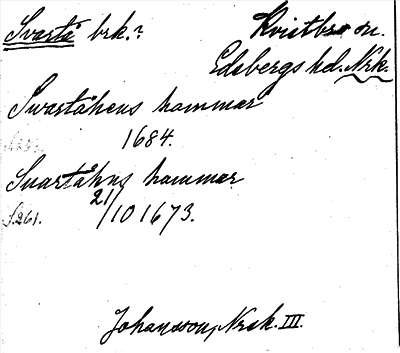 Svartå brk.?
Kvistbro sn.
Edsbergs hd. Nrk.
Swartåhens hammar
1684.
Suartåhns hammar
S.261. 21/10 1673.
Johansson, Nrsk. III.